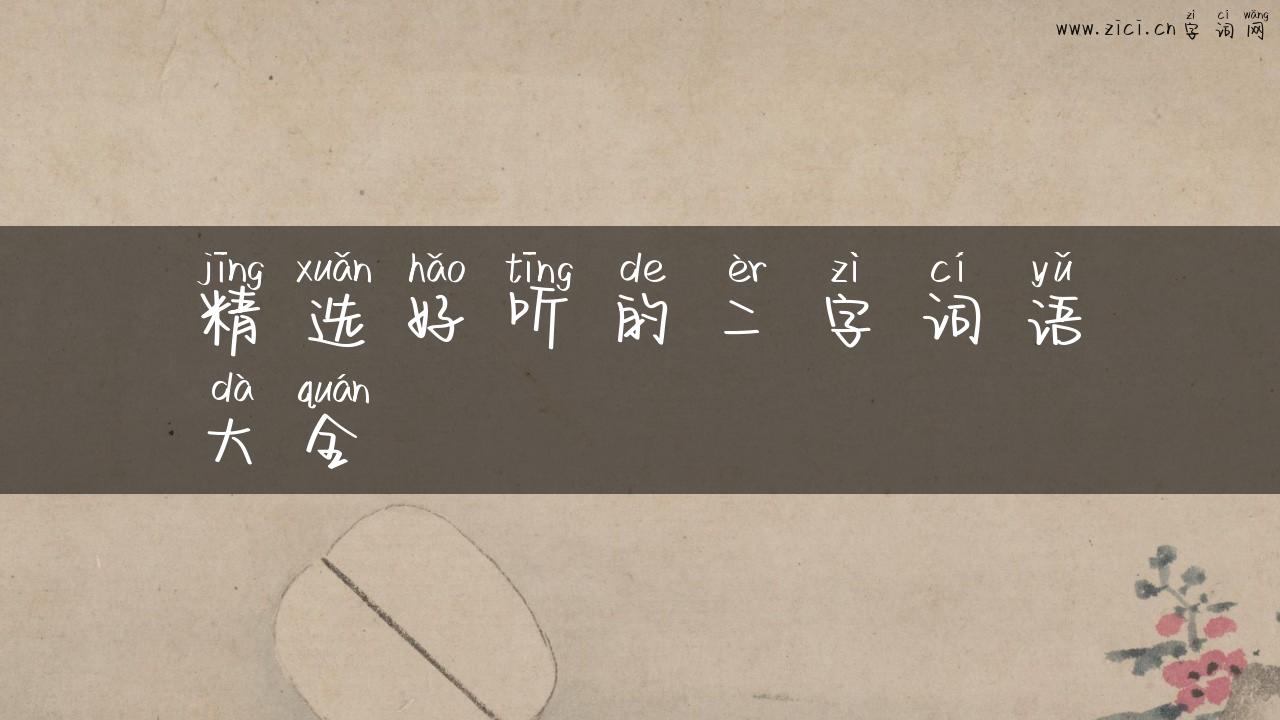 zì cí wǎng
www.zici.cn字词网
jīng xuǎn hǎo tīng de èr zì cí yǔ
精选好听的二字词语
dà quán
大全